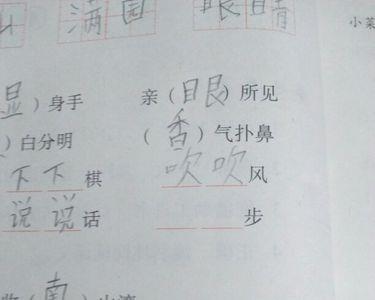 山 满园 眼睛
小菜
显）身手 亲（眼）所见
）白分明 （香）气扑鼻
下下棋 吹吹风
说说话 步
南